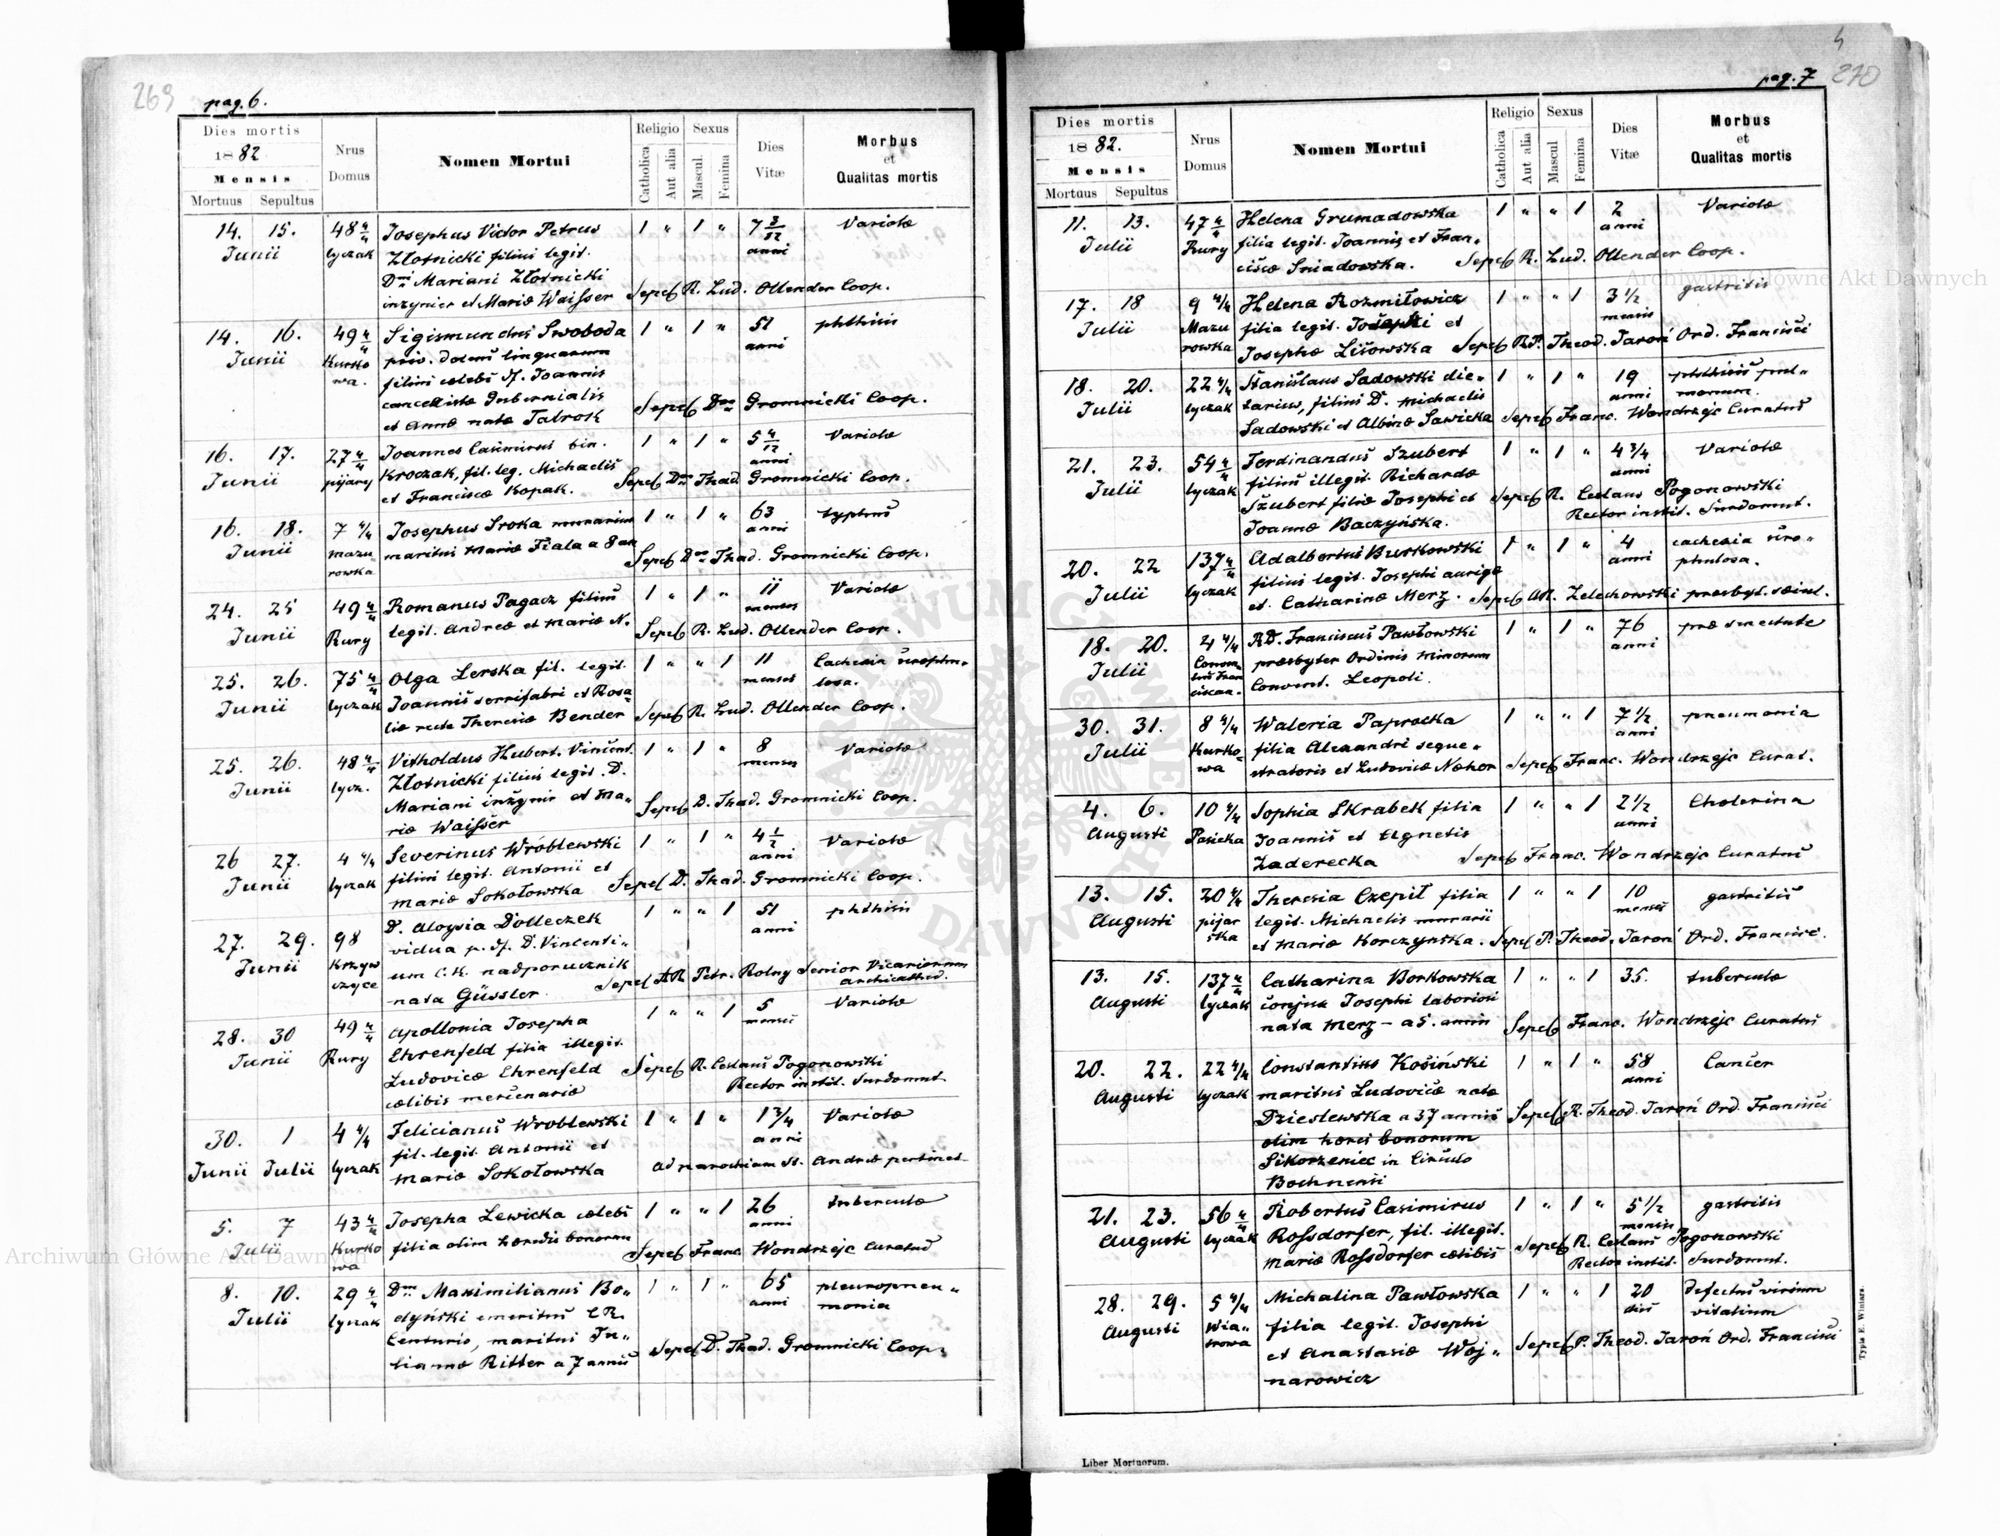 269
pag. 6.
Dies mortis
1882
Mensis
Mortuus Sepultus
Nrus
Domus
Nomen Mortui
Religio
Catholica
Aut alia
Sexus
Mascul.
Femina
Dies
Vitæ
Morbus
et
Qualitas mortis
14. 15. 48 4/4 Josephus Victor Petrus 1 " 1 " 7 3/12 Variolæ
Junii lyczak Złotnicki filius legit. anni
Dni Mariani Złotnicki
inżynier et Mariæ Waisser Sepel R. Lud. Ollender Coop.
14. 16. 49 4/4 Sigismundus Swoboda 1 " 1 " 51 phthisis
Junii Kurko priv. docens linguarum anni
wa. filius cœlebs Joannis
cancellistæ Gubernialis Sepel Dnus Gromnicki Coop.
et Annæ natæ Talrok
16. 17. 27 4/4 Joannes Casimirus bin. 1 " 1 " 5 4/12 Variolæ
Junii pijary Kroczak, fil. leg. Michaelis anni
et Franciscæ Kopak. Sepel Dnus Thad. Gromnicki Coop.
16. 18. 7 4/4 Josephus Sroka murarius 1 " 1 " 63 typhus
Junii Mazu maritus Mariæ Fiala a 8 an anni
rowka Sepel Dnus Thad. Gromnicki Coop.
24. 25 49 4/4 Romanus Pagacz filius 1 " 1 " 11 Variolæ
Junii Rury legit. Andreæ et Mariæ N. menses
Sepel R. Lud. Ollender Coop.
25. 26. 75 4/4 Olga Lerska fil. legit. 1 " " 1 11 Cachexia scrophu-
Junii lyczak Joannis serrifabri et Rosa menses losa.
liæ recte Theresiæ Bender Sepel R. Lud. Ollender Coop.
25. 26. 48 4/4 Vitholdus Hubert. Vincent. 1 " 1 " 8 Variolæ
Junii lycz. Złotnicki filius legit. D. menses
Mariani inżynir et Ma-
riæ Waisser Sepel D. Thad. Gromnicki Coop.
26 27. 4 4/4 Severinus Wróblewski 1 " 1 " 4 1/2 Variolæ
Junii lyczak filius legit. Antonii et anni
Mariæ Sokołowska Sepel D. Thad. Gromnicki Coop.
27. 29. 98 D. Aloysia Dolleczek 1 " " 1 51 phthisis
Junii Krzyw vidua p. D. Vincenti- anni
czyce um C.K. nadporucznik
nata Güssler. Sepel AR Petr. Rolny Senior Vicariorum
archicathed.
28. 30 49 4/4 Apollonia Josepha 1 " " 1 5 Variolæ
Junii Rury Ehrenfeld filia illegit. menses
Ludovicæ Ehrenfeld Sepel R. Ceslaus Pogonowski
cœlibis mercenariæ Rector instit. Surdomut.
30. 1 4 4/4 Felicianus Wroblewski 1 " 1 " 1 3/4 Variolæ
Junii Julii lyczak fil. legit. Antonii et anni
Mariæ Sokołowska ad parochiam St. Andreæ pertinet
5. 7 43 4/4 Josepha Lewicka cœlebs 1 " " 1 26 tuberculæ
Julii Kurko filia olim hæredis bonorum anni
wa Sepel Franc. Wondrzejc Curatus
8. 10. 29 4/4 Dnus Maximilianus Bo- 1 " 1 " 65 pleuropneu-
Julii lyczak dyński emeritus C.R. anni monia
Centurio, maritus Ju-
liannæ Ritter a 7 annis Sepel D. Thad. Gromnicki Coop.
pag. 7
270
Dies mortis
1882.
Mensis
Mortuus Sepultus
Nrus
Domus
Nomen Mortui
Religio
Catholica
Aut alia
Sexus
Mascul
Femina
Dies
Vitæ
Morbus
et
Qualitas mortis
11. 13. 47 4/4 Helena Grumadowska 1 " " 1 2 Variolæ
Julii Rury filia legit. Joannis et Fran- anni
ciscæ Sniadowska. Sepel R. Lud. Ollender Coop.
17. 18 9 4/4 Helena Rozmiłowicz 1 " " 1 3 1/2 gastritis
Julii Mazu filia legit. Josephi et mensis
rowka Josephæ Lisowska Sepel R.P. Theod. Jaroń Ord. Francisci
18. 20. 22 4/4 Stanislaus Sadowski die- 1 " 1 " 19 phthisis pul-
Julii lyczak tarius, filius D. Michaelis anni monum.
Sadowski et Albinæ Sawicka Sepel Franc. Wondrzejc Curatus
21. 23. 54 4/4 Ferdinandus Szubert 1 " 1 " 4 3/4 Variolæ
Julii lyczak filius illegit. Richardæ anni
Szubert filiæ Josephi et Sepel R. Ceslaus Pogonowski
Joannæ Baczyńska. Rector instit. Surdomut.
20. 22 137 4/4 Adalbertus Burkowski 1 " 1 " 4 cachexia scro-
Julii lyczak filius legit. Josephi aurigæ anni phulosa.
et Catharinæ Merz. Sepel AR. Zelechowski presbyt. sæcul.
18. 20. 4/4 RD. Franciscus Pawłowski 1 " 1 " 76 præ senectute
Julii presbyter Ordinis Minorum anni
Convent. Leopoli.
30. 31. 8 4/4 Waleria Paprocka 1 " " 1 7 1/2 pneumonia
Julii Kurko- filia Alexandri seque- anni
wa stratoris et Ludovicæ Nachor Sepel Franc. Wondrzejc Curat.
4. 6. 10 4/4 Sophia Skrabek filia 1 " " 1 2 1/2 Cholerina
Augusti Pasieka Joannis et Agnetis anni
Zaderecka Sepel Franc. Wondrzejc Curatus
13. 15. 20 4/4 Theresia Czepil filia 1 " " 1 10 gastritis
Augusti pijar legit. Michaelis murarii menses
ska et Mariæ Korczynska. Sepel P. Theod. Jaroń Ord. Francisc.
13. 15. 137 4/4 Catharina Borkowska 1 " " 1 35. tuberculæ
Augusti lyczak conjux Josephi laboriosi
nata Merz – a 5. annis Sepel Franc. Wondrzejc Curatus
20. 22. 22 4/4 Constantinus Kosiński 1 " 1 " 58 Cancer
Augusti lyczak maritus Ludovicæ natæ anni
Dzieslewska a 37 annis Sepel R. Theod. Jaroń Ord. Francisci
olim hæres bonorum
Sikorzeniec in Circulo
Bochnensi
21. 23. 56 4/4 Robertus Casimirus 1 " 1 " 5 1/2 gastritis
Augusti lyczak Rossdorfer, fil. illegit. mensis
Mariæ Rossdorfer cœlibis Sepel R. Ceslaus Pogonowski
Rector instit. Surdomut.
28. 29. 5 4/4 Michalina Pawłowska 1 " " 1 20 defectus virium
Augusti Wia- filia legit. Josephi dies vitalium
trowa et Anastasiæ Woj- Sepel P. Theod. Jaroń Ord. Francisci
narowicz
Liber Mortuorum.
Typis E. Winiarz.
Archiwum Główne Akt Dawnych
Archiwum Główne Akt Dawnych
ARCHIWUM GŁÓWNE AKT DAWNYCH